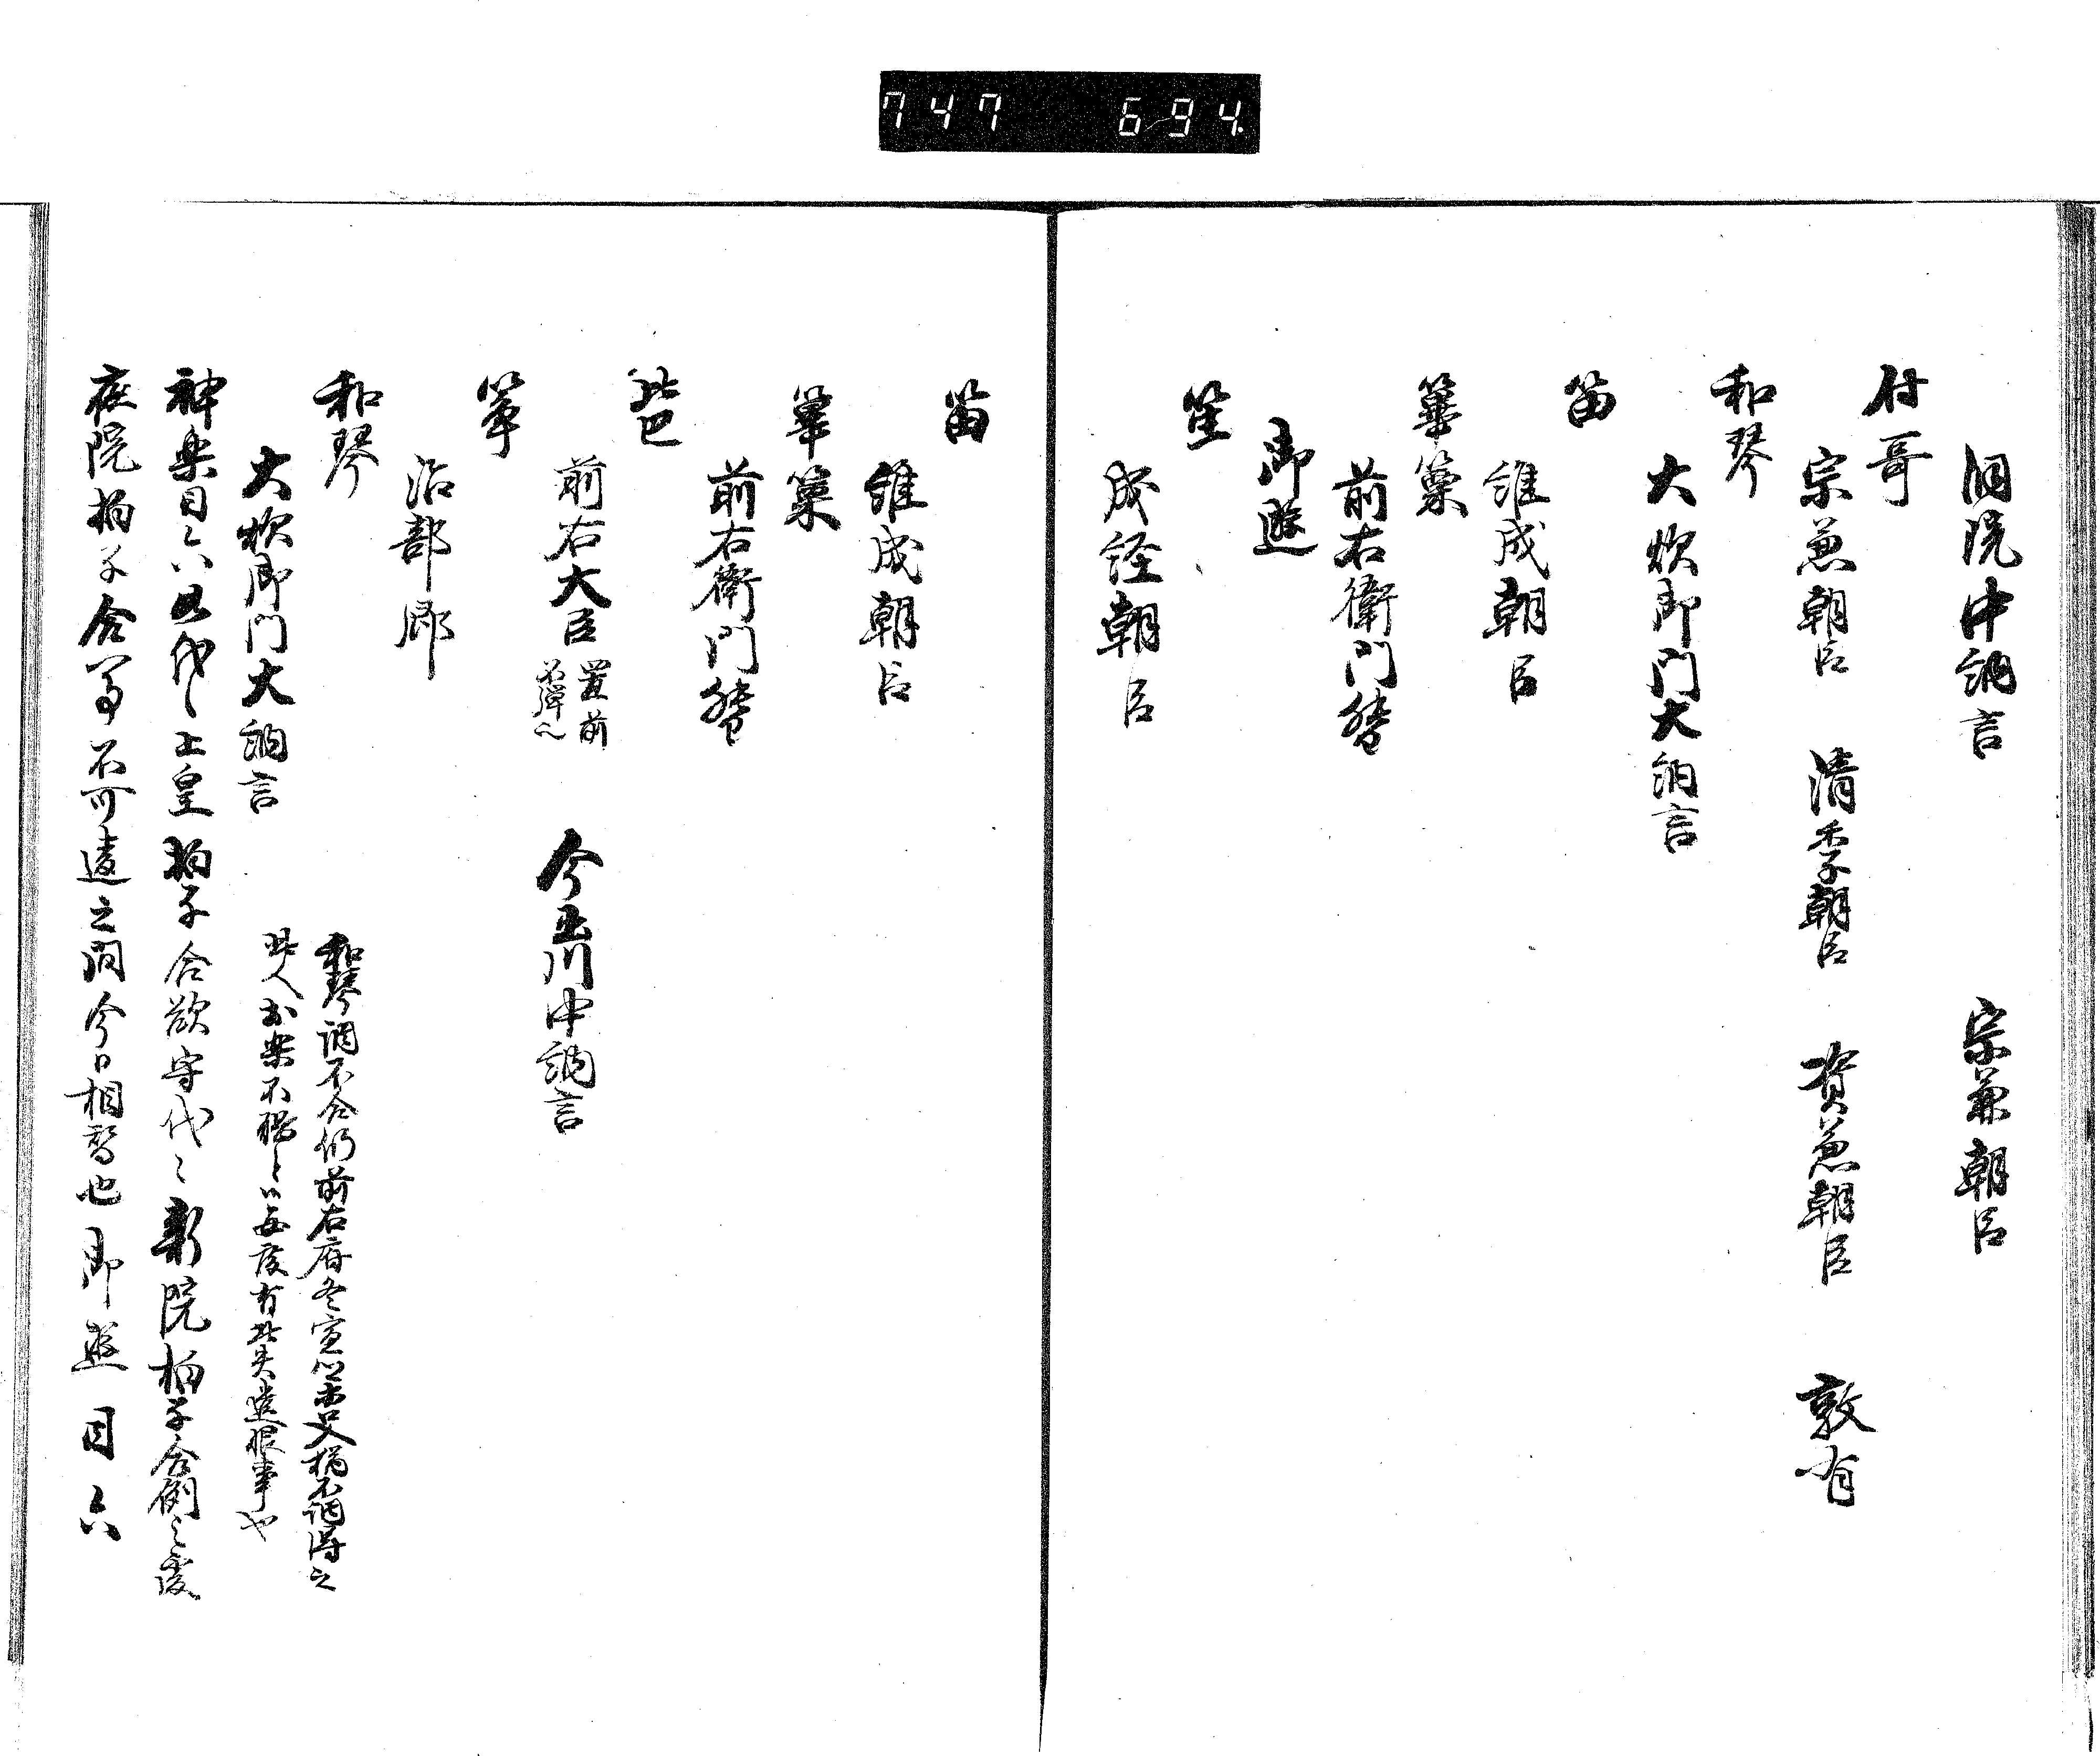 747 694
洞院中納言 宗兼朝臣
付哥
宗兼朝臣 清季朝臣 資兼朝臣 敦有
和琴
大炊御門大納言
笛
維成朝臣
篳篥
前右衛門督
御遊
笙
成経朝臣
笛
維成朝臣
篳篥
前右衛門督
琵巴
前右大臣 置前不弾之 今出川中納言
箏
治部卿
和琴
大炊御門大納言
和琴調不合仍前右府
不調得之
此人於楽不堪之以毎度有此失遺恨事也
神楽目六 上皇拍子合欲守代々新院拍子合例之處
庭院拍子合等不可違之間今日相替也御遊目六